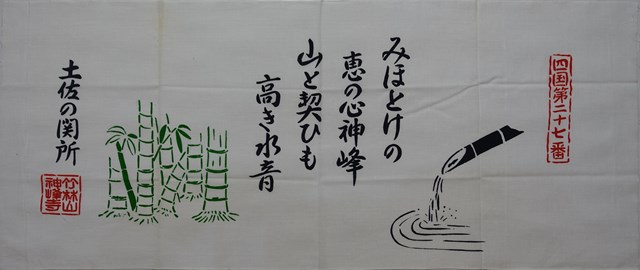 四国第二十七番
みほとけの
恵の心神峰
山と契ひも
高き水音
土佐の関所
竹林山
神峰寺